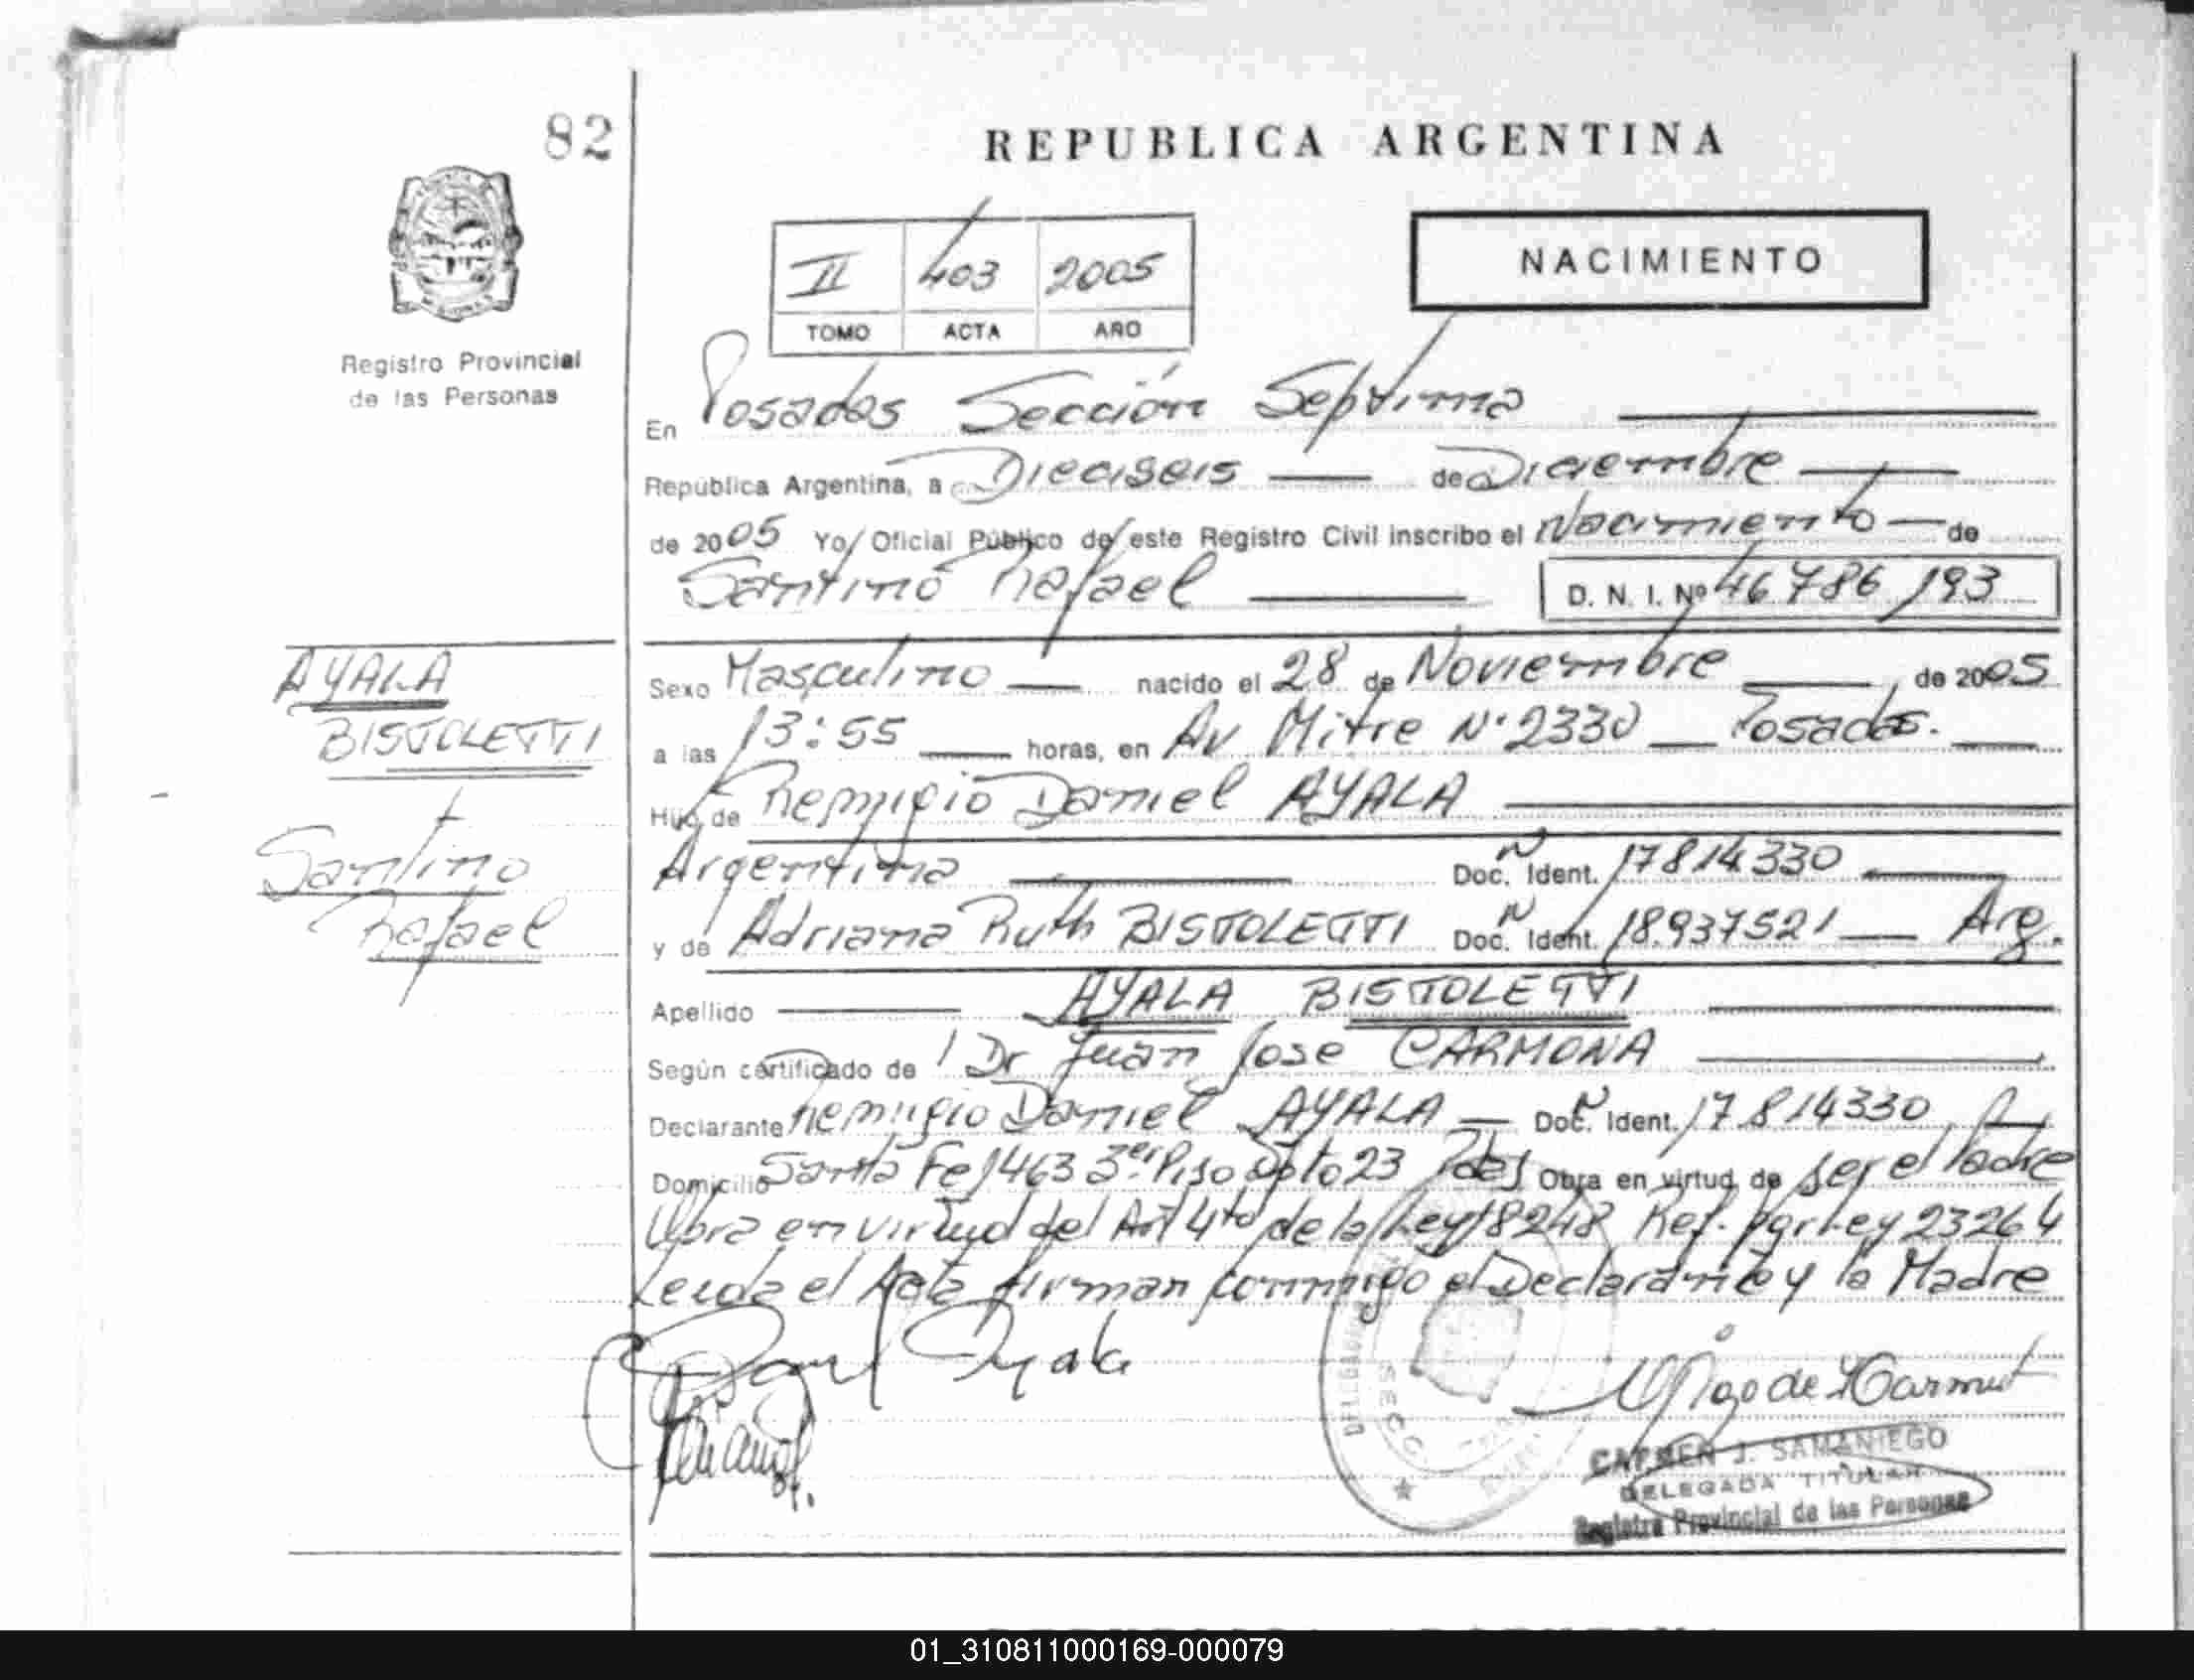 82
REPUBLICA ARGENTINA
II 403 2005
TOMO ACTA AÑO
NACIMIENTO
Registro Provincial
de las Personas
En Posadas Sección Septima
República Argentina, a Dieciseis de Diciembre
de 2005 Yo, Oficial Público de este Registro Civil inscribo el Nacimiento de
Santino Rafael D. N. I. Nº 46.786.193
AYALA
BISTOLETTI
Santino
Rafael
Sexo Masculino nacido el 28 de Noviembre de 2005
a las 13:55 horas, en Av Mitre Nº 2330 Posadas.
Hijo de Remigio Daniel AYALA
Argentina Doc. N Ident. 17814330
y de Adriana Ruth BISTOLETTI Doc. N Ident. 18.937521 Arg.
Apellido AYALA BISTOLETTI
Según certificado de Dr Juan Jose CARMONA
Declarante Remigio Daniel AYALA Doc. N Ident. 17.814330
Domicilio Santa Fe 1463 3er Piso Dpto 23 Pdas Obra en virtud de ser el Padre
Obra en virtud del Art 4to de la Ley 18248 Ref. por Ley 23264
Leida el Acta firman conmigo el Declarante y la Madre
Ayala
CARMEN J. SAMANIEGO
DELEGADA TITULAR
Registro Provincial de las Personas
01_310811000169-000079